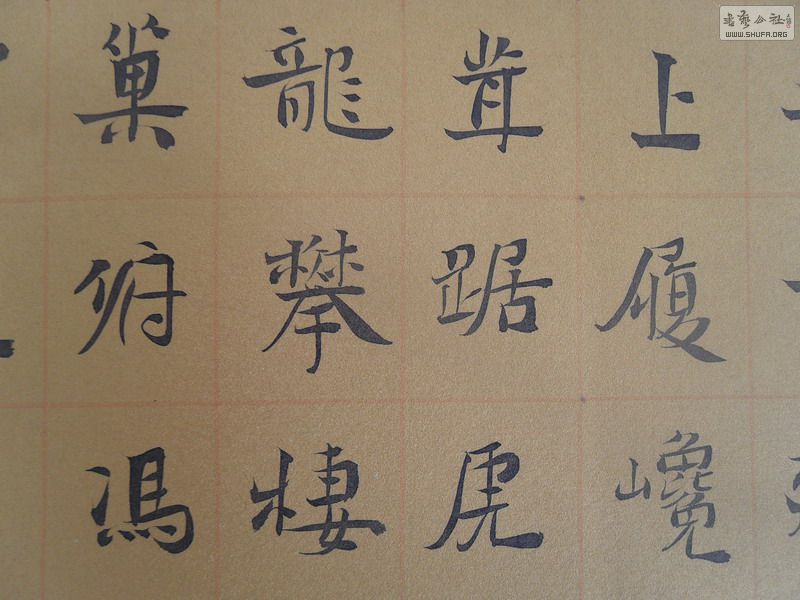 上履巉
茸踞虎
龍攀棲
巢俯馮
書藝公社
WWW.SHUFA.ORG